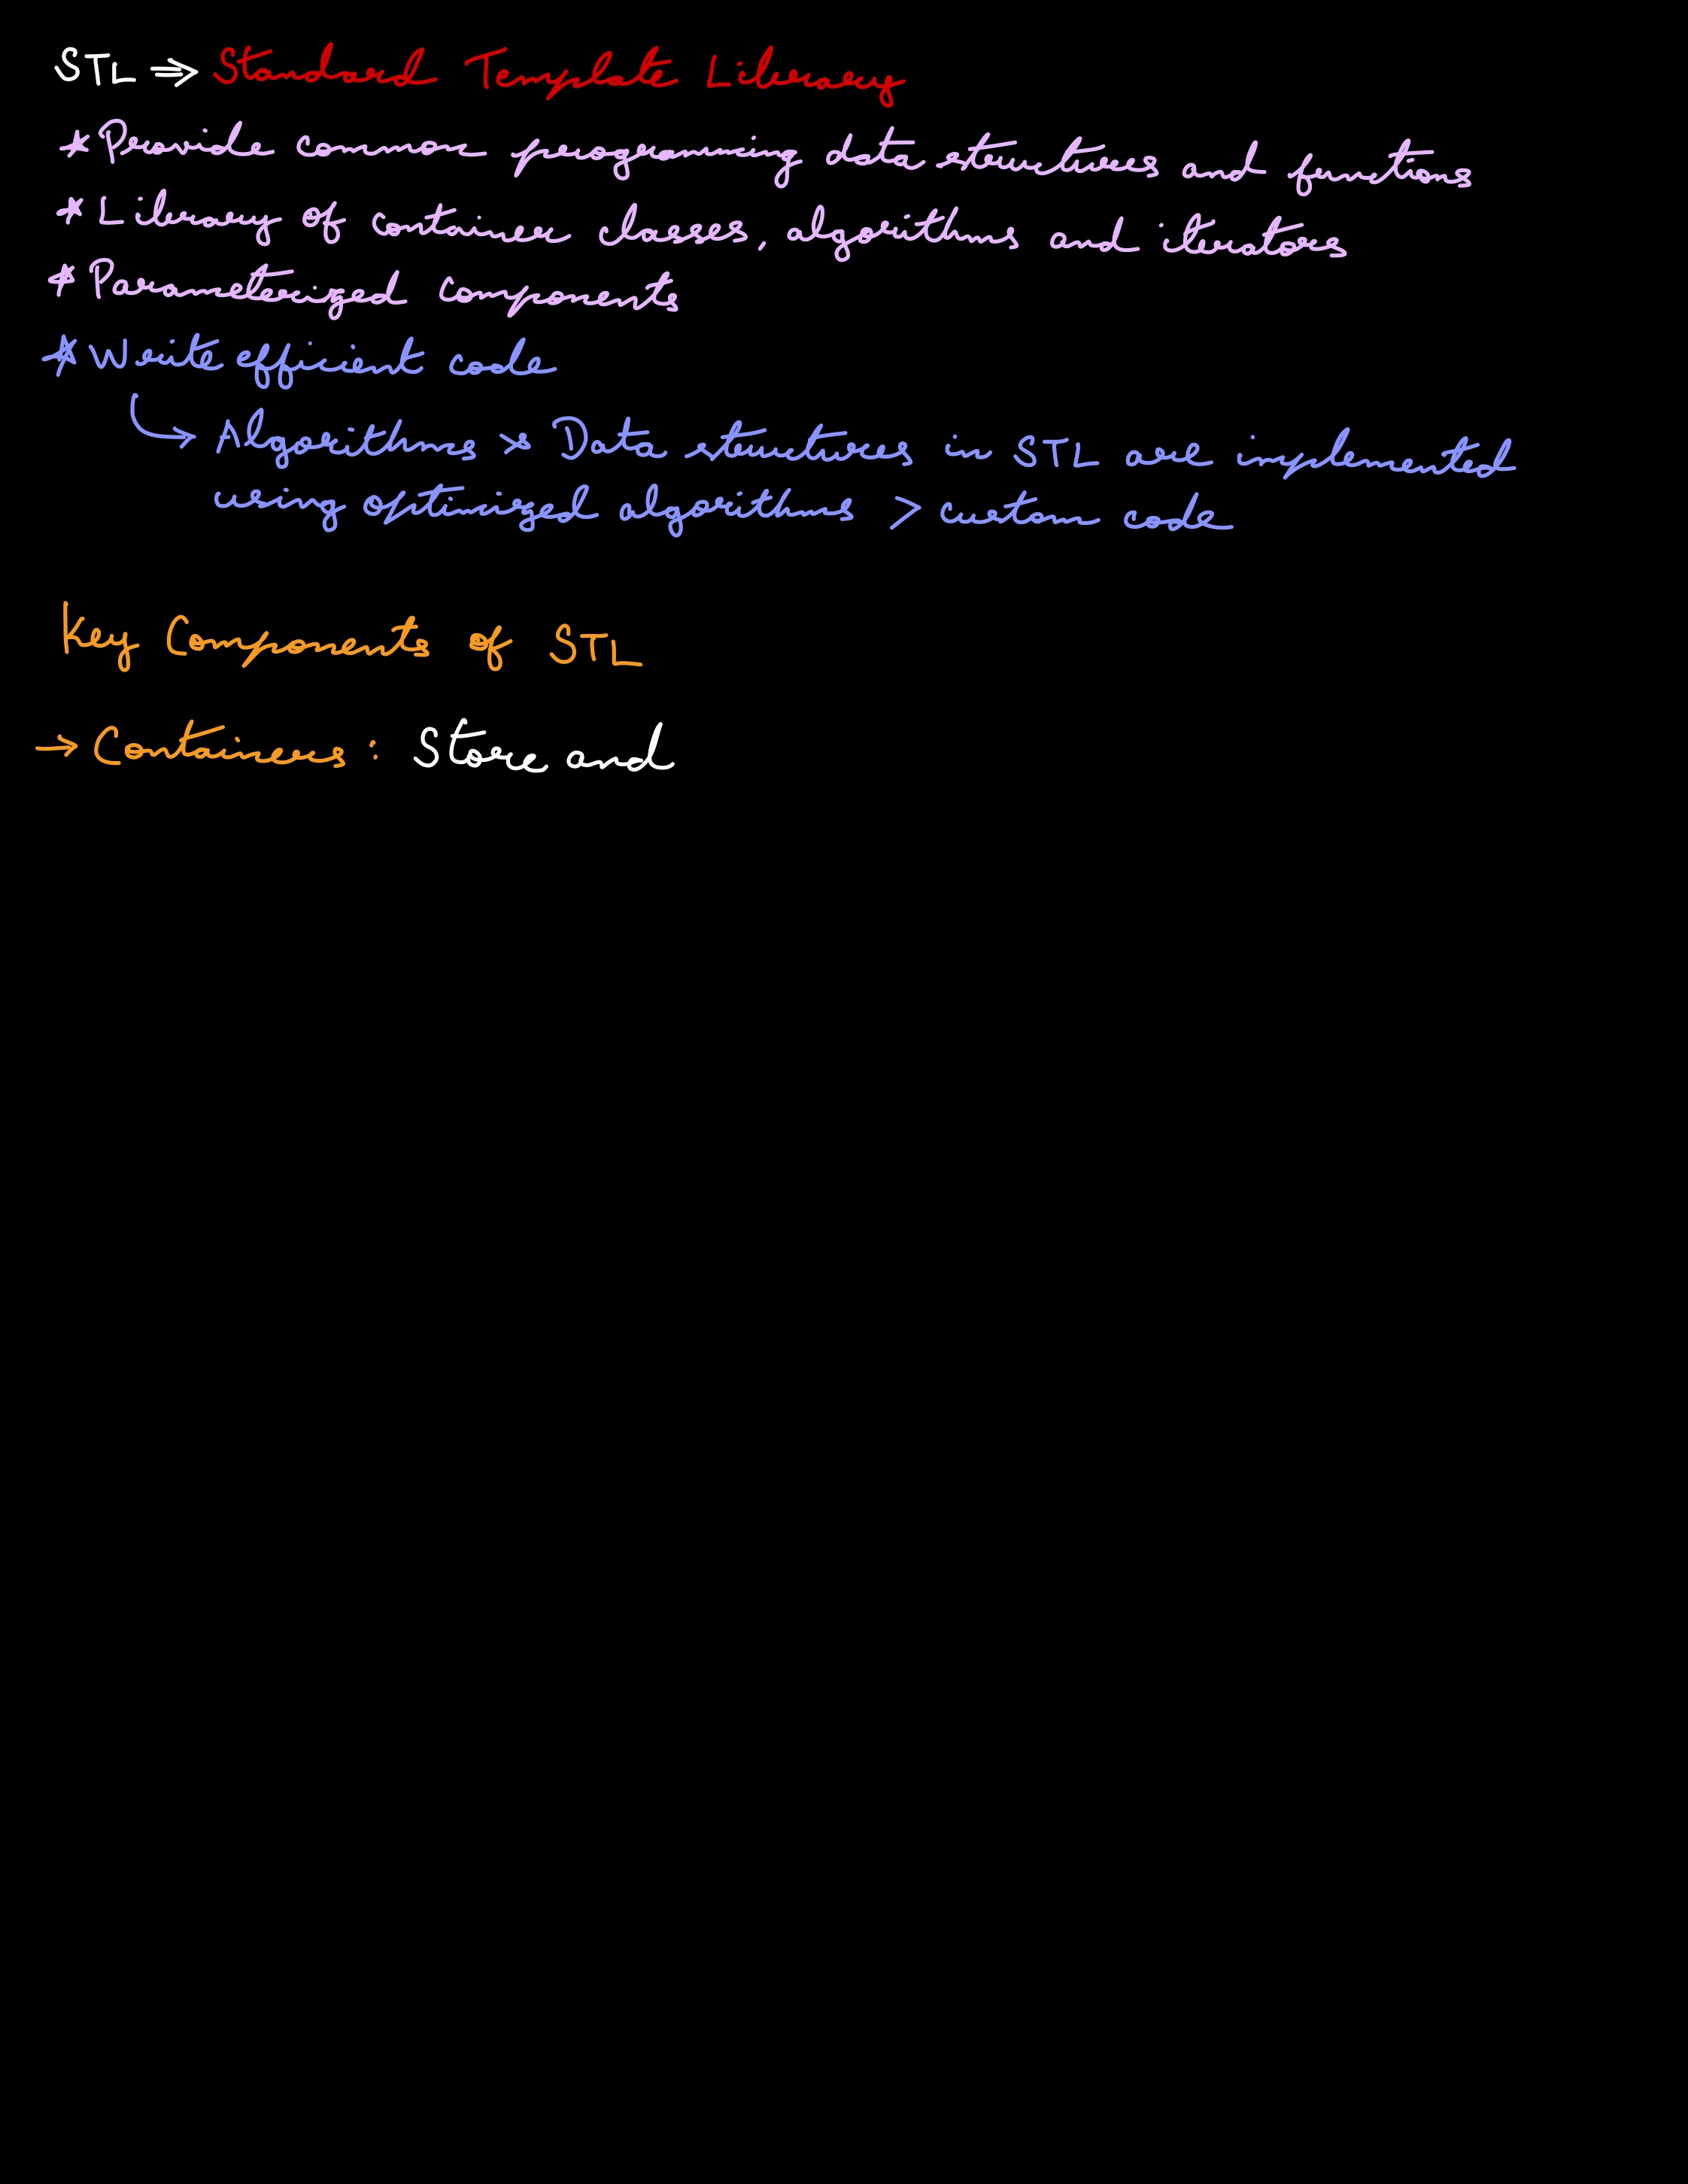 STL ⇒ Standard Template Library
* Provide common programming data structures and functions
* Library of container classes, algorithms and iterators
* Parameterized components
* Write efficient code
↳ Algorithms & Data structures in STL are implemented
using optimized algorithms > custom code
Key Components of STL
→ Containers : Store and